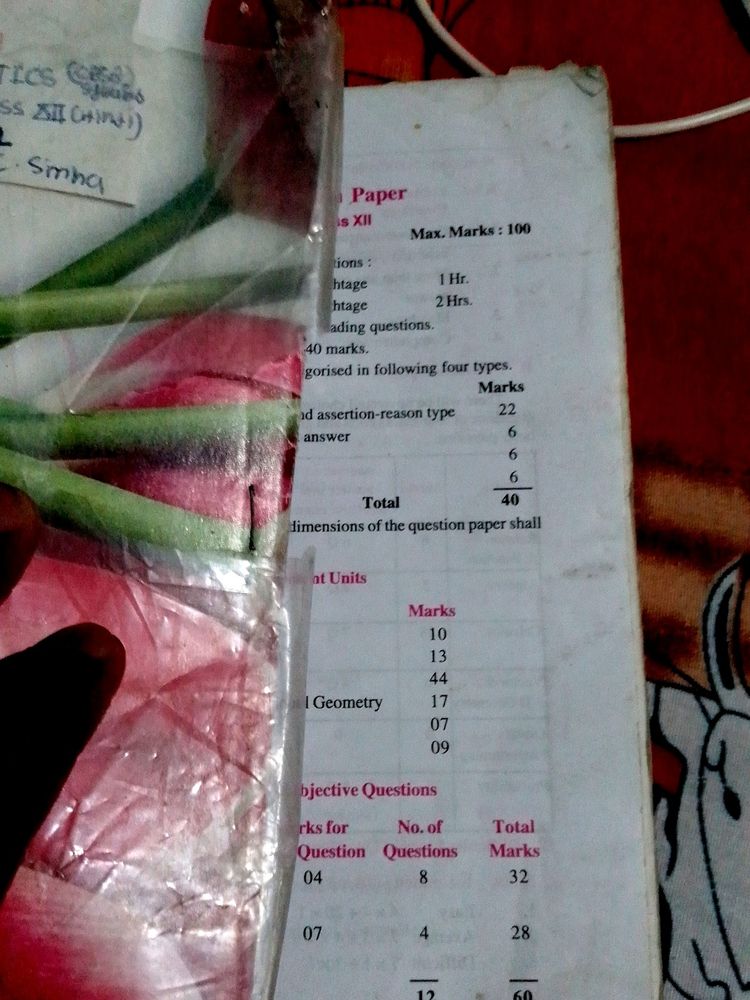 TICS (CBSE)
ss XII (+1n+1)
Sinha
Paper
ss XII
Max. Marks : 100
tions :
htage 1 Hr.
htage 2 Hrs.
ading questions.
40 marks.
gorised in following four types.
Marks
nd assertion-reason type 22
answer 6
6
6
Total 40
dimensions of the question paper shall
nt Units
Marks
10
13
44
l Geometry 17
07
09
bjective Questions
rks for No. of Total
Question Questions Marks
04 8 32
07 4 28
12 60